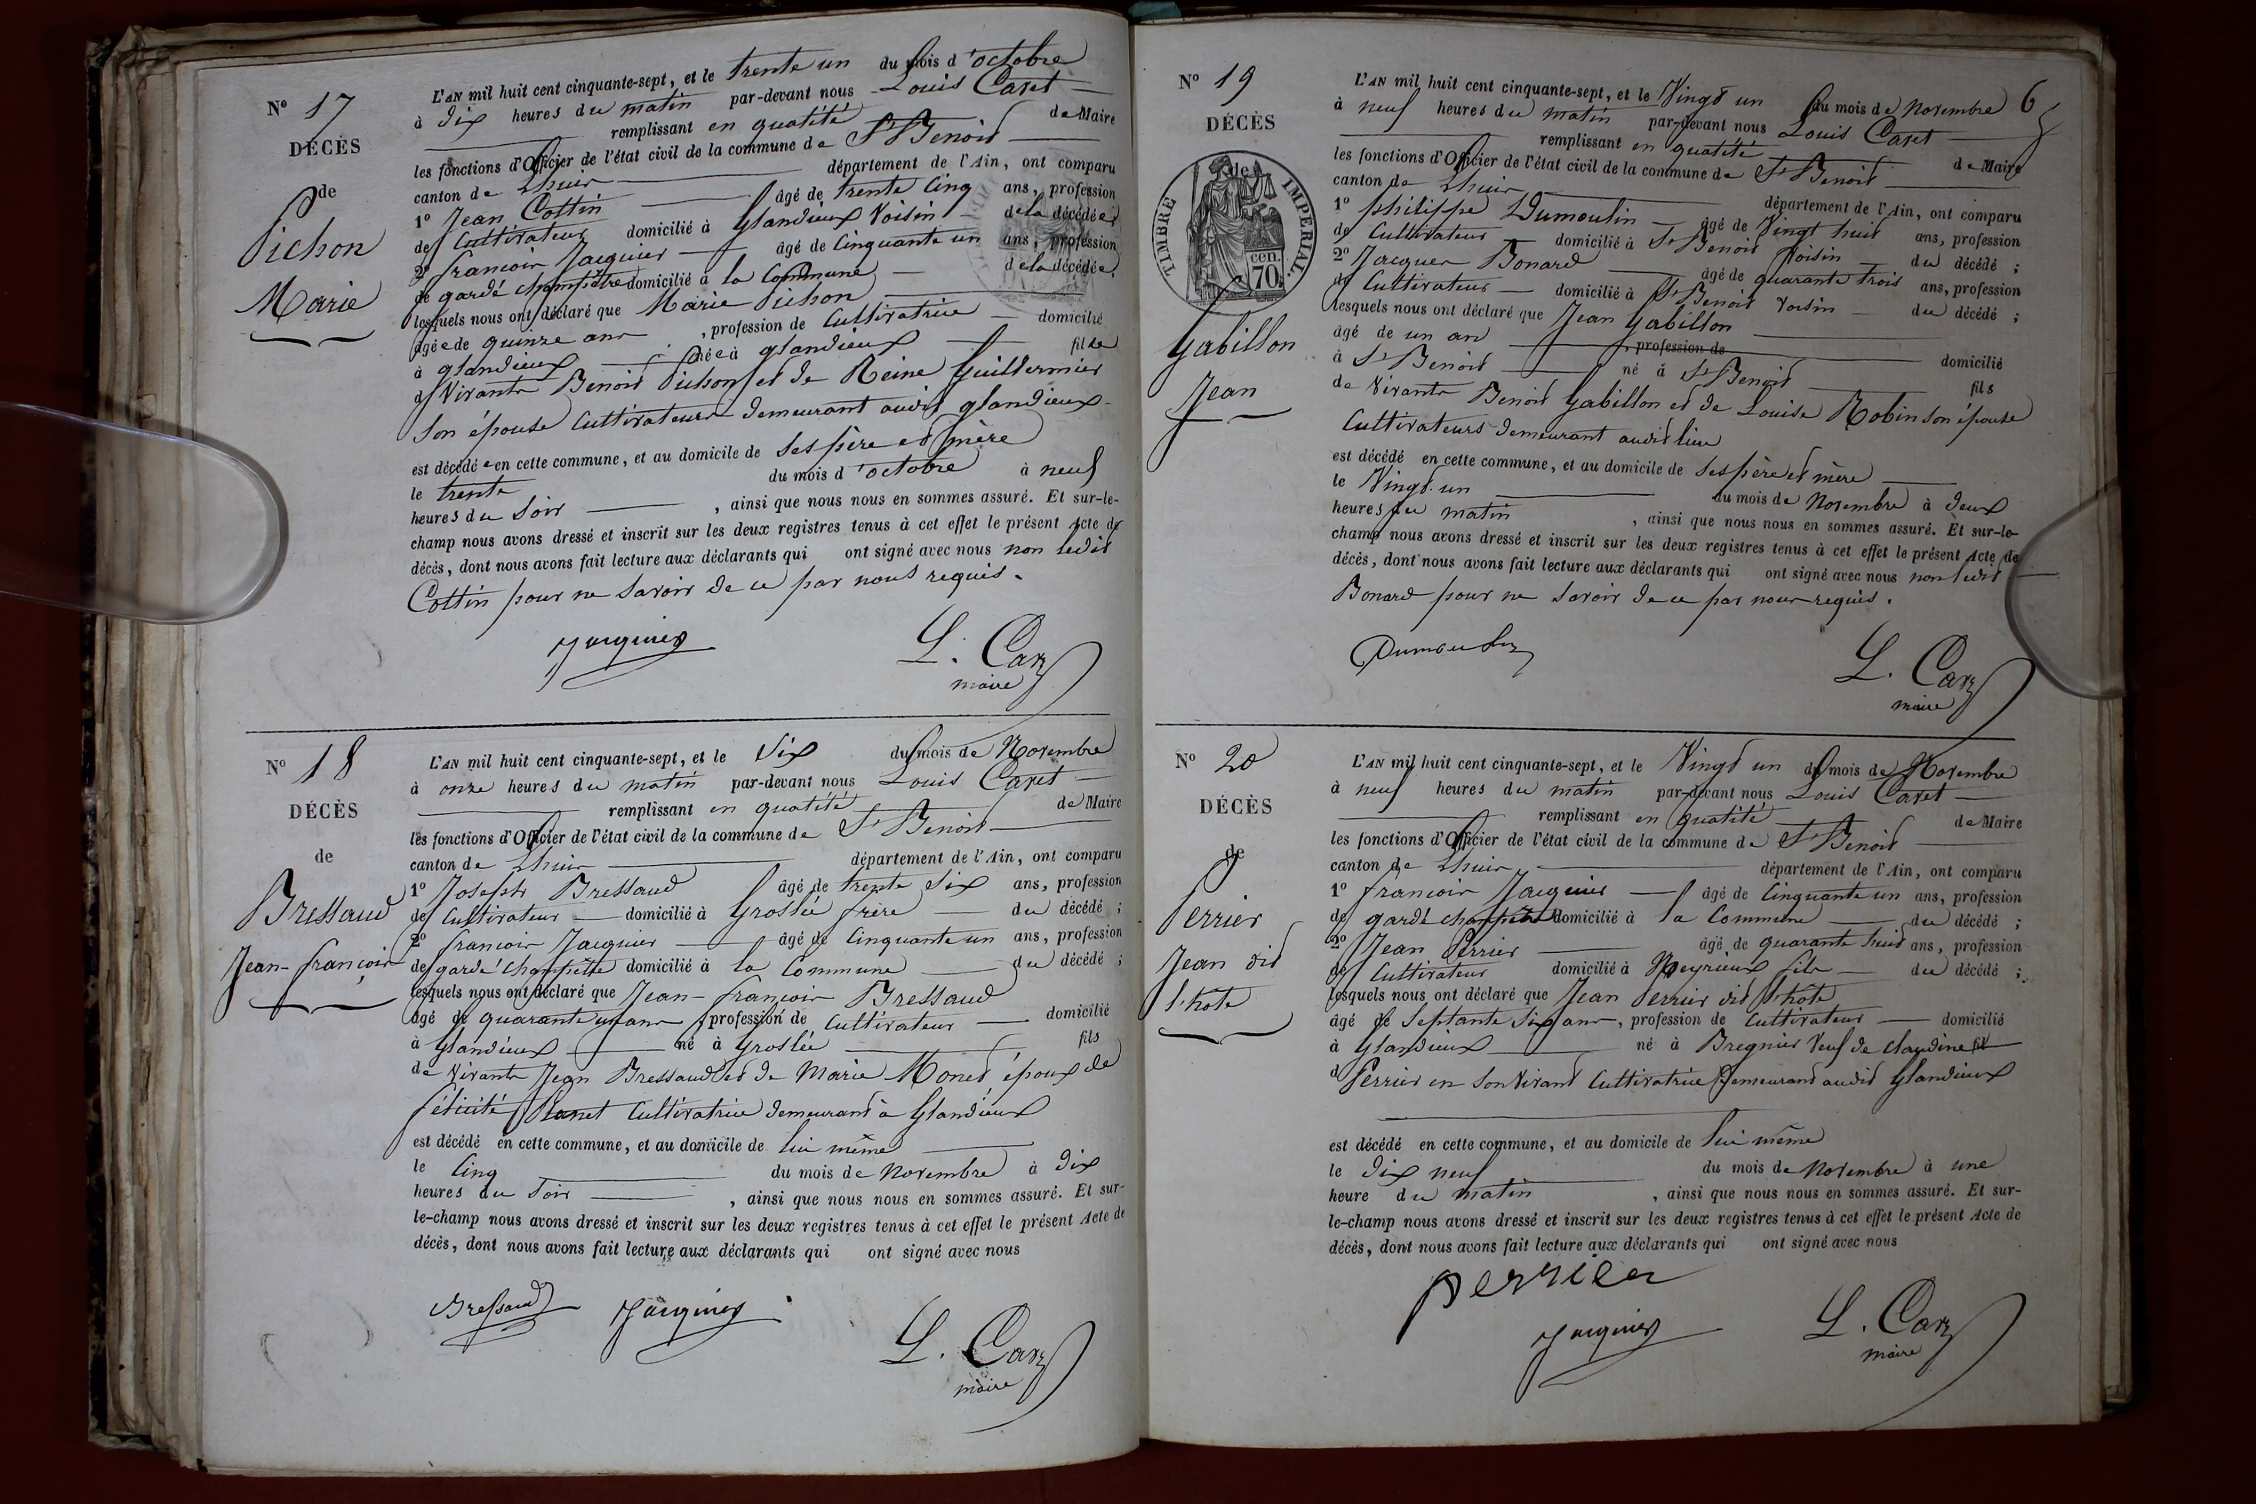 N° 17
DÉCÈS
de
Pichon
Marie
L'AN mil huit cent cinquante-sept, et le trente un du mois d'octobre
à dix heures du matin par-devant nous Louis Caret
remplissant en qualité de Maire
les fonctions d'Officier de l'état civil de la commune de St Benoit
canton de Lhuis département de l'Ain, ont comparu
1° Jean Cottin âgé de trente cinq ans, profession
de Cultivateur domicilié à Glandieux Voisin de la décédée
2° françois Jacquier âgé de Cinquante un ans, profession
de garde champêtre domicilié à la Commune de la décédée
lesquels nous ont déclaré que Marie Pichon
âgée de quinze ans, profession de Cultivatrice domicilié
à glandieux née à glandieux fille
de Vivants Benoit Pichon et de Reine Guillermier
son épouse Cultivateurs demeurant audit glandieux
est décédée en cette commune, et au domicile de ses père et mère
le trente du mois d'octobre à neuf
heures du soir, ainsi que nous nous en sommes assuré. Et sur-le-
champ nous avons dressé et inscrit sur les deux registres tenus à cet effet le présent Acte de
décès, dont nous avons fait lecture aux déclarants qui ont signé avec nous non ledit
Cottin pour ne savoir de ce par nous requis.
Jacquier
L. Caret
maire
N° 18
DÉCÈS
de
Bressaud
Jean-françois
L'AN mil huit cent cinquante-sept, et le Six du mois de Novembre
à onze heures du matin par-devant nous Louis Caret
remplissant en qualité de Maire
les fonctions d'Officier de l'état civil de la commune de St Benoit
canton de Lhuis département de l'Ain, ont comparu
1° Joseph Bressaud âgé de trente Six ans, profession
de Cultivateur domicilié à Groslée frère du décédé ;
2° françois Jacquier âgé de Cinquante un ans, profession
de garde champêtre domicilié à la Commune du décédé ;
lesquels nous ont déclaré que Jean-françois Bressaud
âgé de quarante un ans, profession de Cultivateur domicilié
à Glandieux né à Groslée fils
de vivants Jean Bressaud et de Marie Monet époux de
félicité Cultivatrice demeurant à Glandieux
est décédé en cette commune, et au domicile de lui même
le Cinq du mois de Novembre à dix
heures du Soir, ainsi que nous nous en sommes assuré. Et sur-
le-champ nous avons dressé et inscrit sur les deux registres tenus à cet effet le présent Acte de
décès, dont nous avons fait lecture aux déclarants qui ont signé avec nous
Bressaud Jacquier
L. Caret
maire
N° 19
DÉCÈS
de
TIMBRE IMPERIAL
70 cen.
Gabillon
Jean
6
L'AN mil huit cent cinquante-sept, et le Vingt un du mois de Novembre
à neuf heures du matin par-devant nous Louis Caret
remplissant en qualité de Maire
les fonctions d'Officier de l'état civil de la commune de St Benoit
canton de Lhuis département de l'Ain, ont comparu
1° philippe Dumoulin âgé de Vingt huit ans, profession
de Cultivateur domicilié à St Benoit Voisin du décédé ;
2° Jacques Bonard âgé de quarante trois ans, profession
de Cultivateur domicilié à St Benoit Voisin du décédé ;
lesquels nous ont déclaré que Jean Gabillon
âgé de un an profession de domicilié
à St Benoit né à St Benoit fils
de vivants Benoit Gabillon et de Louise Robin son épouse
Cultivateurs demeurant audit lieu
est décédé en cette commune, et au domicile de ses père et mère
le Vingt un du mois de Novembre à deux
heures du matin, ainsi que nous nous en sommes assuré. Et sur-le-
champ nous avons dressé et inscrit sur les deux registres tenus à cet effet le présent Acte de
décès, dont nous avons fait lecture aux déclarants qui ont signé avec nous non ledit
Bonard pour ne savoir de ce par nous requis.
Dumoulin
L. Caret
maire
N° 20
DÉCÈS
de
Perrier
Jean dit
l'hôte
L'AN mil huit cent cinquante-sept, et le Vingt un du mois de Novembre
à neuf heures du matin par-devant nous Louis Caret
remplissant en qualité de Maire
les fonctions d'Officier de l'état civil de la commune de St Benoit
canton de Lhuis département de l'Ain, ont comparu
1° françois Jacquier âgé de Cinquante un ans, profession
de garde champêtre domicilié à la Commune du décédé ;
2° Jean Perrier âgé de quarante huit ans, profession
de Cultivateur domicilié à Meyrieux fils du décédé ;
lesquels nous ont déclaré que Jean Perrier dit l'hôte
âgé de Septante Six ans, profession de Cultivateur domicilié
à Glandieux né à Bregnier Veuf de Claudine fil
d Perrier en son vivant Cultivatrice demeurant audit Glandieux
est décédé en cette commune, et au domicile de lui même
le dix neuf du mois de Novembre à une
heure du matin, ainsi que nous nous en sommes assuré. Et sur-
le-champ nous avons dressé et inscrit sur les deux registres tenus à cet effet le présent Acte de
décès, dont nous avons fait lecture aux déclarants qui ont signé avec nous
perrier
Jacquier
L. Caret
maire